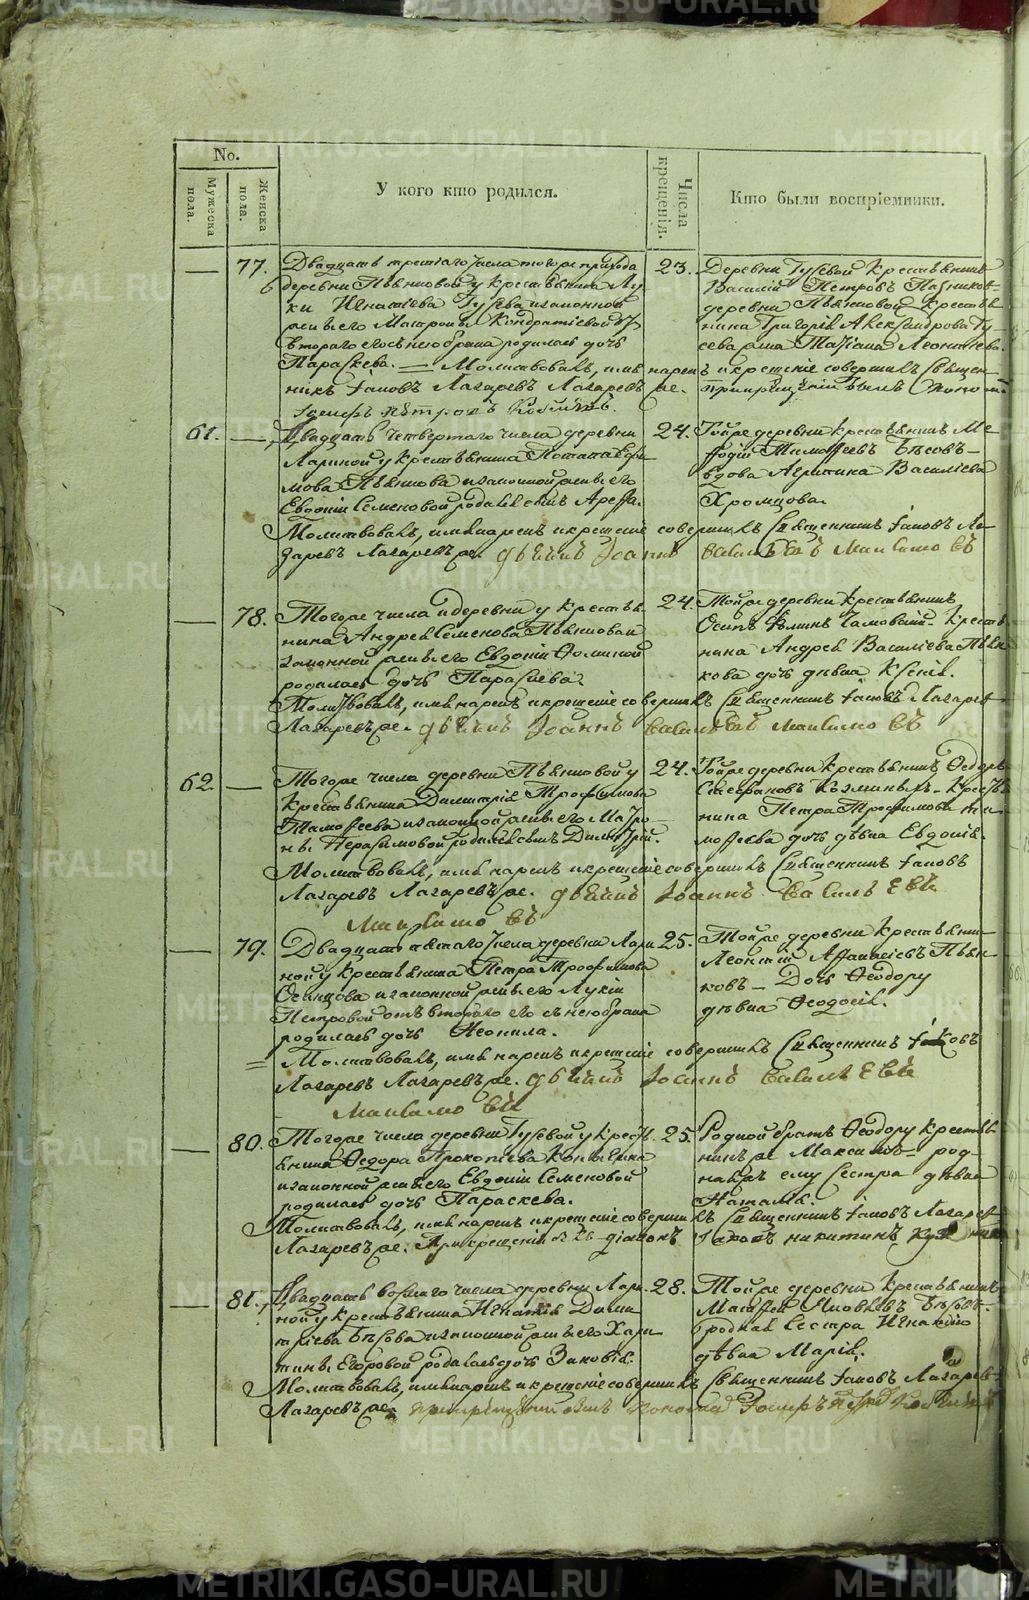 No.
Мужеска пола.
Женска пола.
У кого кто родился.
Числа крещенія.
Кто были воспріемники.
77. Двадцать третьяго числа того же прихода
деревни Пьянковой у крестьянина Лу
ки Игнатіева Гусева и законной
жены его Матроны Кондратіевой отъ
втораго его съ нею брака родилась дочь
Параскева. Молитвовалъ, имя нарекъ и крещеніе совершилъ Священ
никъ Іаковъ Лазаревъ Лазаревъ же. При крещеніи былъ
Петровъ
23. Деревни Гусевой крестьянинъ
Василій Петровъ
деревни Пьянковой крестья
нина Григорія Александрова Гу
сева жена Татіана Леонтіева.
61. Двадцать четвертаго числа деревни
Лариной у крестьянина Потапа
Пьянкова и законной жены его
Евдокіи Семеновой родился сынъ Арефа.
Молитвовалъ, имя нарекъ и крещеніе совершилъ Священникъ Іаковъ Ла
заревъ Лазаревъ же. дьячикъ Іоаннъ Васильевъ
24. Тойже деревни крестьянинъ Ме
фодій Тимофеевъ Бѣсовъ
вдова Агрипина Василіева
Хромцова.
78. Тогоже числа и деревни у крестья
нина Андрея Семенова Пьянкова и
законной жены его Евдокіи Фоминой
родилась дочь Параскева.
Молитвовалъ, имя нарекъ и крещеніе совершилъ Священникъ Іаковъ Лазарев
Лазаревъ же. дьячикъ Іоаннъ Васильевъ
24. Тойже деревни крестьянинъ
Осипъ крестья
нина Андрея Василіева Пьян
кова дочь дѣвица Ксенія.
62. Тогоже числа деревни Пьянковой у
крестьянина Димитрія Трофимова
Тимофеева и законной жены его Матро
ны Герасимовой родился сынъ Димитрій.
Молитвовалъ, имя нарекъ и крещеніе совершилъ Священникъ Іаковъ
Лазаревъ Лазаревъ же. дьячикъ Іоаннъ Васильевъ
24. Тойже деревни крестьянинъ Федоръ
Стефановъ Козминыхъ крестья
нина Петра Трофимова Ти
мофеева дочь дѣвица Евдокія.
79. Двадцать пятаго числа деревни Лари
ной у крестьянина Петра Трофимова
Осинцова и законной жены его Лукіи
Петровой отъ втораго его съ нею брака
родилась дочь Неонила.
Молитвовалъ, имя нарекъ и крещеніе совершилъ Священникъ Іаковъ
Лазаревъ Лазаревъ же. дьячикъ Іоаннъ Васильевъ
25. Тойже деревни крестьянинъ
Леонтій Афанасіевъ Пьян
ковъ Дочь Феодору
дѣвица Феодосія.
80. Тогоже числа деревни Гусевой у кресть
янина Федора Прокопіева
и законной жены его Евдокіи Семеновой
родилась дочь Параскева.
Молитвовалъ, имя нарекъ и крещеніе совершилъ Священникъ Іаковъ Лазарев
Лазаревъ же. При крещеніи былъ діаконъ Іаковъ Никитинъ
25. Родной братъ Феодору кресть
нинъ же Максимъ род
наяжъ ему сестра дѣвица
Наталія.
81. Двадцать восьмаго числа деревни Лари
ной у крестьянина Игнатія Дими
тріева Бѣсова и законной жены его Хари
тины Егоровой родилась дочь Зиновія.
Молитвовалъ, имя нарекъ и крещеніе совершилъ Священникъ Іаковъ Лазарев
Лазаревъ же. при крещеніи былъ
28. Тойже деревни крестьянинъ
Матфей Яковлевъ Бѣсовъ
родная сестра Игнатію
дѣвица Марія.
METRIKI.GASO-URAL.RU